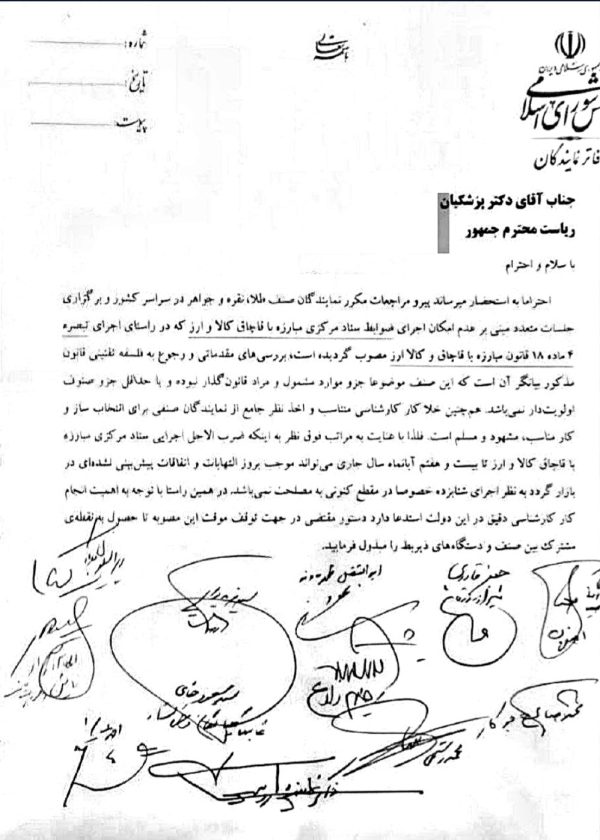 باسمه تعالی
شماره:
تاریخ:
پیوست:
جمهوری اسلامی ایران
شورای اسلامی
دفاتر نمایندگان
جناب آقای دکتر پزشکیان
ریاست محترم جمهور
با سلام و احترام
احتراما به استحضار میرساند پیرو مراجعات مکرر نمایندگان صنف طلا، نقره و جواهر در سراسر کشور و برگزاری
جلسات متعدد مبنی بر عدم امکان اجرای ضوابط ستاد مرکزی مبارزه با قاچاق کالا و ارز که در راستای اجرای تبصره
۴ ماده ۱۸ قانون مبارزه با قاچاق و کالا ارز مصوب گردیده است، بررسی‌های مقدماتی و رجوع به فلسفه تقنینی قانون
مذکور بیانگر آن است که این صنف موضوعا جزو موارد مشمول و مراد قانون‌گذار نبوده و یا حداقل جزو صنوف
اولویت‌دار نمی‌باشد. هم‌چنین خلا کار کارشناسی متناسب و اخذ نظر جامع از نمایندگان صنفی برای انتخاب ساز و
کار مناسب، مشهود و مسلم است. فلذا با عنایت به مراتب فوق نظر به اینکه ضرب الاجل اجرایی ستاد مرکزی مبارزه
با قاچاق کالا و ارز تا بیست و هفتم آبانماه سال جاری می‌تواند موجب بروز التهابات و اتفاقات پیش‌بینی نشده‌ای در
بازار گردد به نظر اجرای شتابزده خصوصا در مقطع کنونی به مصلحت نمی‌باشد. در همین راستا با توجه به اهمیت انجام
کار کارشناسی دقیق در این دولت استدعا دارد دستور مقتضی در جهت توقف موقت این مصوبه تا حصول به نقطه‌ی
مشترک بین صنف و دستگاه‌های ذیربط را مبذول فرمایید.